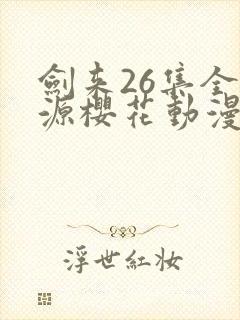 劍来26集全
源櫻花動漫
浮世紅妆